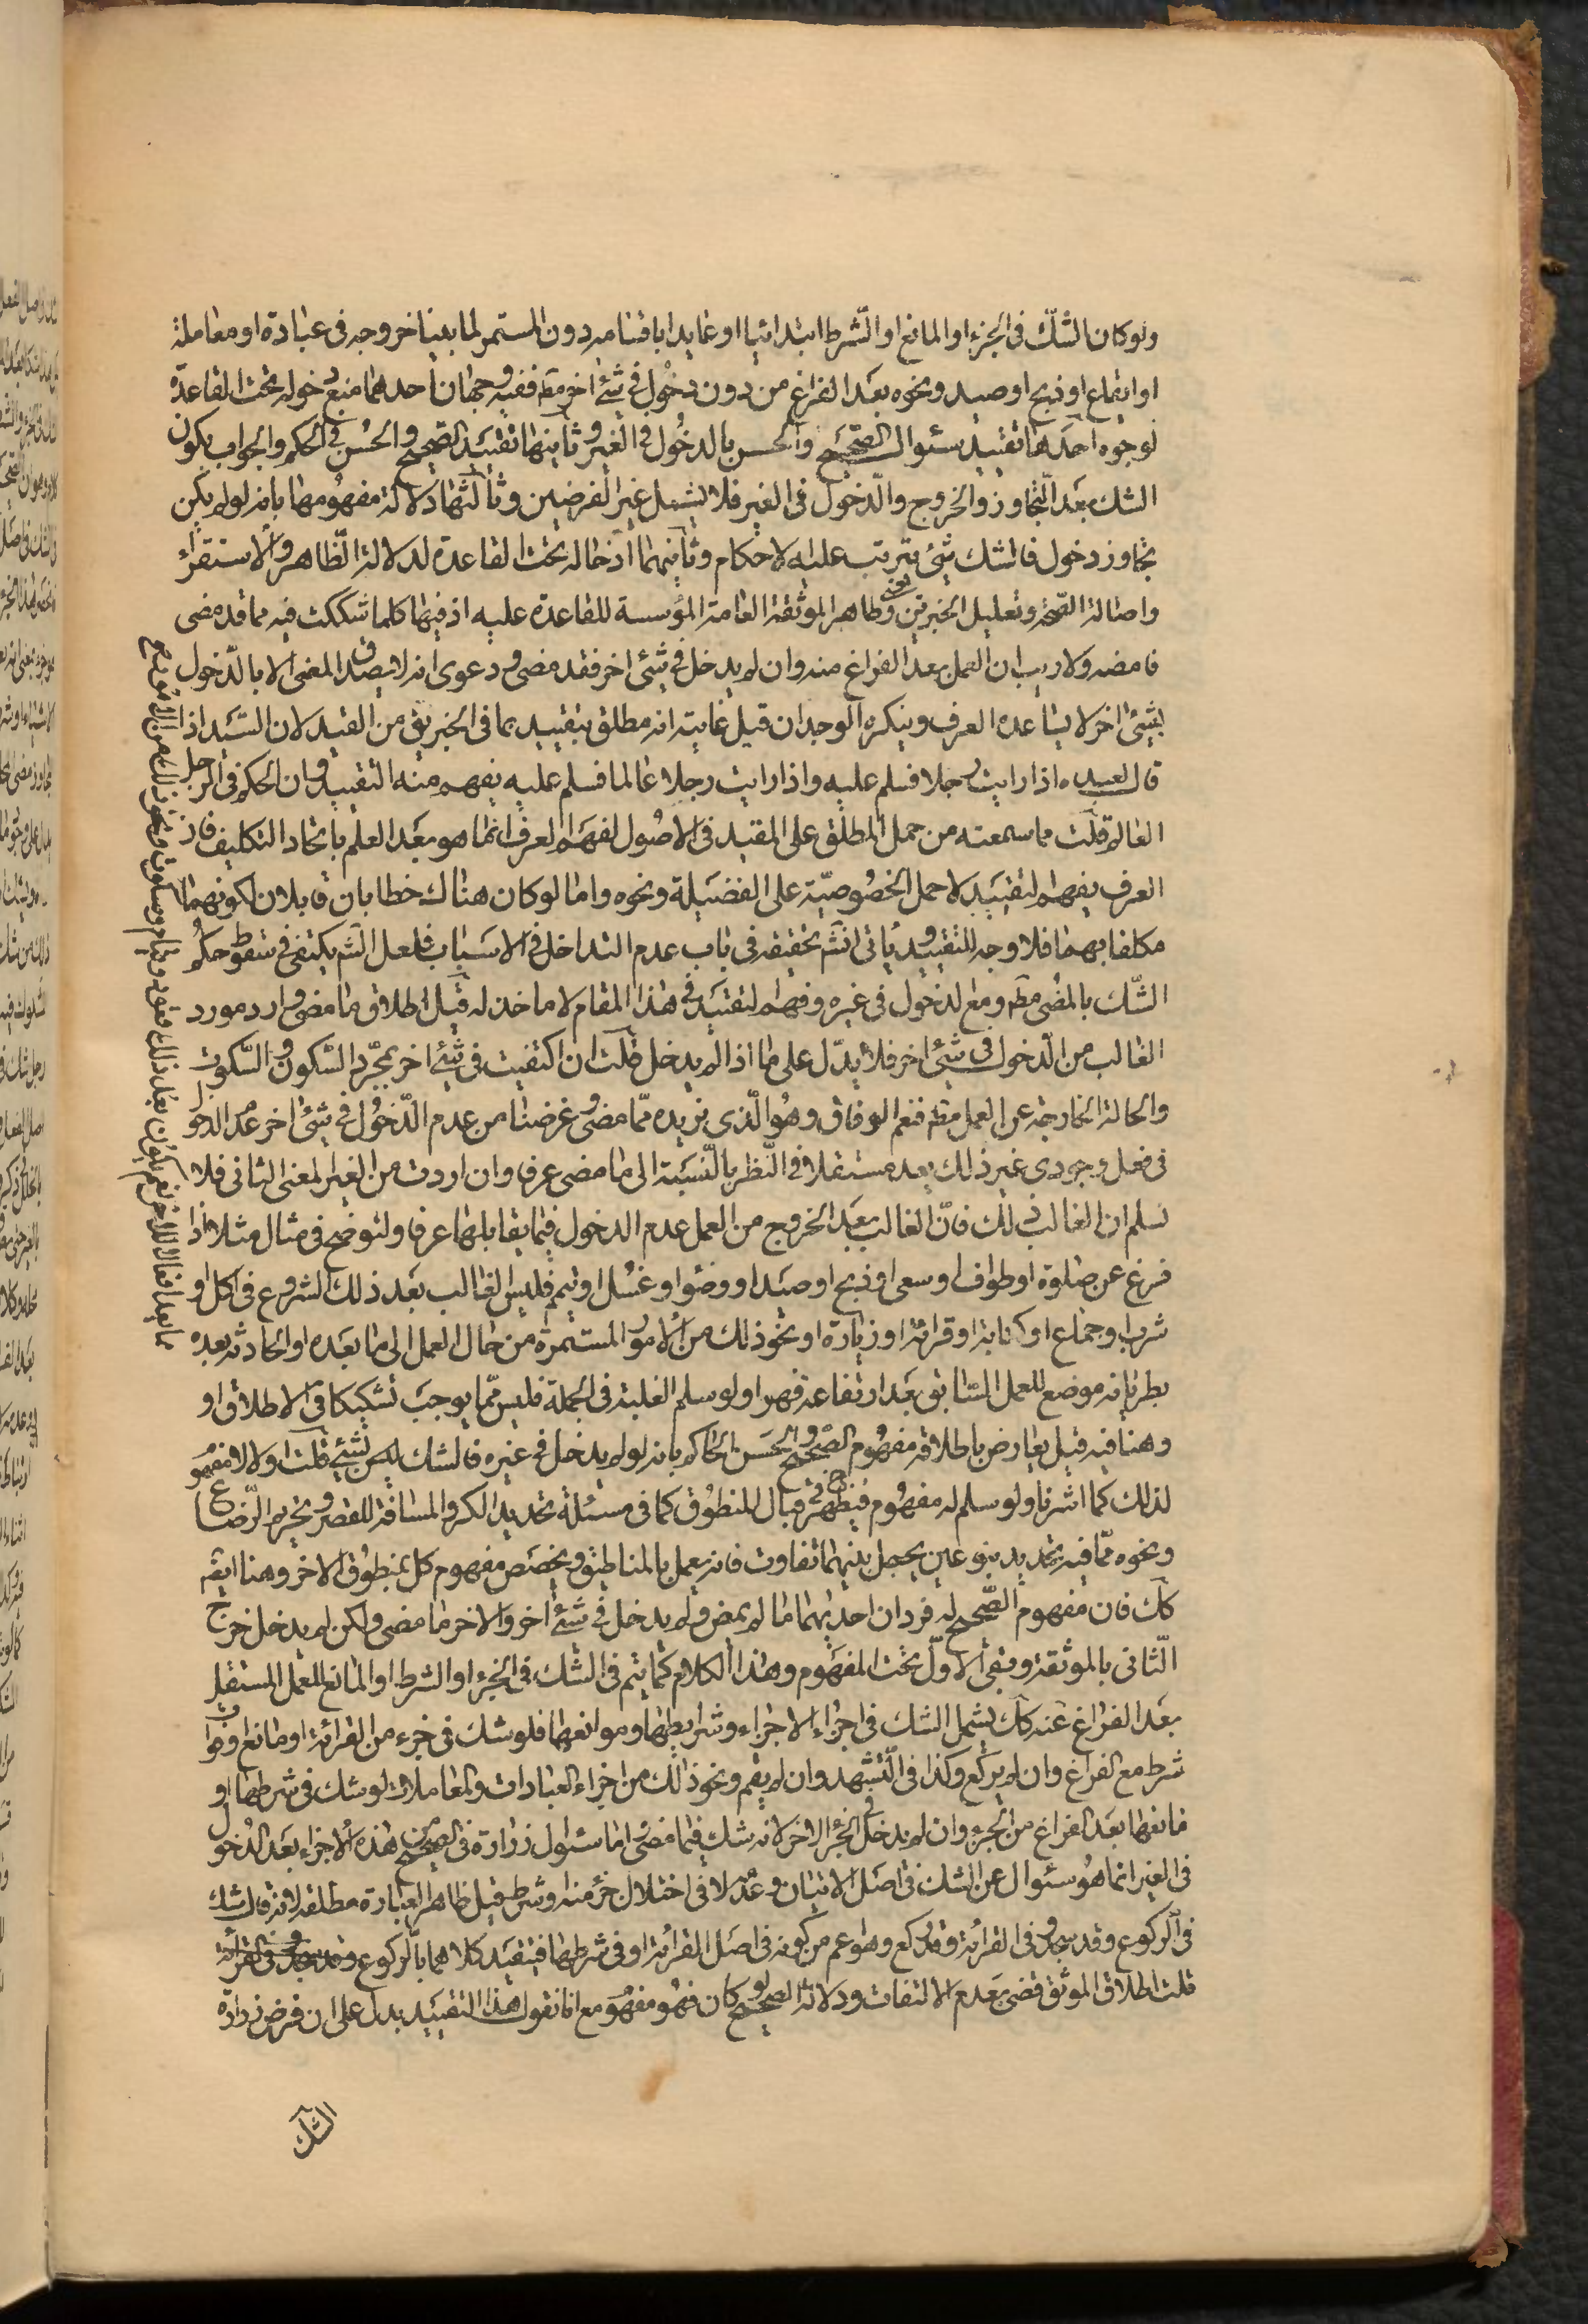 ولو كان الشك فى الجزء او المانع او الشرط ابتدائيا او عايدا باقسامه دون المستمر لما بعينا خروجه فى عبادة او معاملة
او ايقاع او ذبح او صيد ونحوه بعد الفراغ من دون دخول فى شئ اخر مقم ففيه وجهان احدهما منع دخوله تحت القاعدة
لوجوه احدها تقييد سئوال الصحيح والحسن بالدخول فى الغير وثانيها تقييد الصحيح والحسن فى الحكم والجواب بكون
الشك بعد التجاوز والخروج والدخول فى الغير فلا يشمل غير الفرضين وثالثها دلالة مفهومها بانه لو لم يكن
تجاوز دخول فالشك شئ يترتب عليه الاحكام وثانيهما ادخاله تحت القاعدة لدلالة الظاهر والاستقراء
واصالة الصحة وتعليل الخبرين وظاهر الموثقة العامة المؤسسة للقاعدة عليه اذ فيها كلما شككت فيه مما قد مضى
فامضه ولا ريب ان العمل بعد الفراغ منه وان لم يدخل فى شئ اخر فقد مضى ودعوى انه لا يصدق المضى الا بالدخول
بشئ اخر لا يساعده العرف وينكره الوجدان قيل غايته انه مطلق يتقييد بما فى الخبرين من القيد لان السيد اذا
قال لعبده اذا رايت رجلا فسلم عليه واذا رايت رجلا عالما فسلم عليه يفهم منه التقييد وان الحكم فى الرجل
العالم قلت ما سمعته من حمل المطلق على المقيد فى الاصول لفهم العرف انما هو بعد العلم باتحاد التكليف فان
العرف يفهم التقييد لا حمل الخصوصية على الفضيلة ونحوه واما لو كان هناك خطابان قابلان لكونهما
مكلفا بهما فلا وجه للتقييد ويأتى انشم تحقيقه فى باب عدم التداخل فى الاسباب فلعل الشم يكتفى فى سقوط حكم
الشك بالمضى مطم ومع الدخول فى غيره وفهم التقييد فى هذا المقام لا ماخذ له قيل اطلاق ما مضى وارد مورد
الغالب من الدخول فى شئ اخر فلا يدل على ما اذا لم يدخل قلت ان اكتفيت فى شئ اخر بمجرد السكون والسكوت
والحالة الخارجة عن العمل مقم فنعم الوفاق وهو الذى نريده مما مضى وغرضنا من عدم الدخول فى شئ اخر عدم الدخول
فى فعل وجودى غير ذلك يعد مستقلا فى النظر بالنسبة الى ما مضى عرفا وان اردت من الغير المعنى الثانى فلا
نسلم ان الغالب ذلك فان الغالب بعد الخروج من العمل عدم الدخول فيما يقابلها عرفا ولنوضح فى مثال مثلا اذا
فرغ عن صلوة او طواف او سعى او ذبح او صيد او وضوء او غسل او تيمم فليس الغالب بعد ذلك الشروع فى اكل او
شرب او جماع او كتابة او قرائة او زيارة او نحو ذلك من الامور المستمرة من حال العمل الى ما بعده او الحادثه بعده
بطريانه موضع للعمل السابق بعد ارتفاعه فهو اولو سلم الغلبة فى الجملة فليس مما يوجب تشكيكا فى الاطلاق او
وهنا فيه قيل يعارض باطلاقه مفهوم الصحيح والحسن الحاكم بانه لو لم يدخل فى غيره فالشك ليس بشئ قلت اولا لا مفهوم
لذلك كما اشرنا ولو سلم له مفهوم فيظهر فى قبال المنطوق كما فى مسئلة تحديد الكر والمسافة للقصر وتحريم الرضاع
ونحوه مما فيه تحديد بنوعين يحصل بينهما تفاوت فانه يعمل بالمناطيق ويخصص مفهوم كل بمنطوق الاخر وهنا ايضه
كك فان مفهوم الصحيح له فردان احدهما ما لم يمض ولم يدخل فى شئ اخر والاخر ما مضى ولكن لم يدخل خرج
الثانى بالموثقة وبقى الاول تحت المفهوم وهذا الكلام كما يتم فى الشك فى الجزء او الشرط او المانع للعمل المستقل
بعد الفراغ عنه كك يشمل الشك فى اجزاء الاجزاء وشرايطها وموانعها فلو شك فى جزء من القرائة او مانع او فوات
شرط مع الفراغ وان لم يركع وكذا فى التشهد وان لم يقم ونحو ذلك من اجزاء العبادات والمعاملات لو شك فى شرطها او
مانعها بعد الفراغ من الجزء وان لم يدخل فى الجزء الاخر لانه شك فيما مضى اما سئوال زرارة فى الصحيح عن هذه الاجزاء بعد الدخول
فى الغير انما هو سئوال عن الشك فى اصل الاتيان وعدمه لا فى اختلال جزء منه وشرط قيل ظاهر العبارة مطلقة لانه قال شك
فى الركوع وقد سجد وفى القرائة وقد ركع وهو اعم من كونه فى اصل القرائة او فى شرطها فيتقيد كلاهما بالركوع
قلت اطلاق الموثق قضى بعدم الالتفات ودلالة الصحيح لو كان فهو مفهوم مع انا نقول هذا التقييد يدل على ان فرض زرارة
الشك